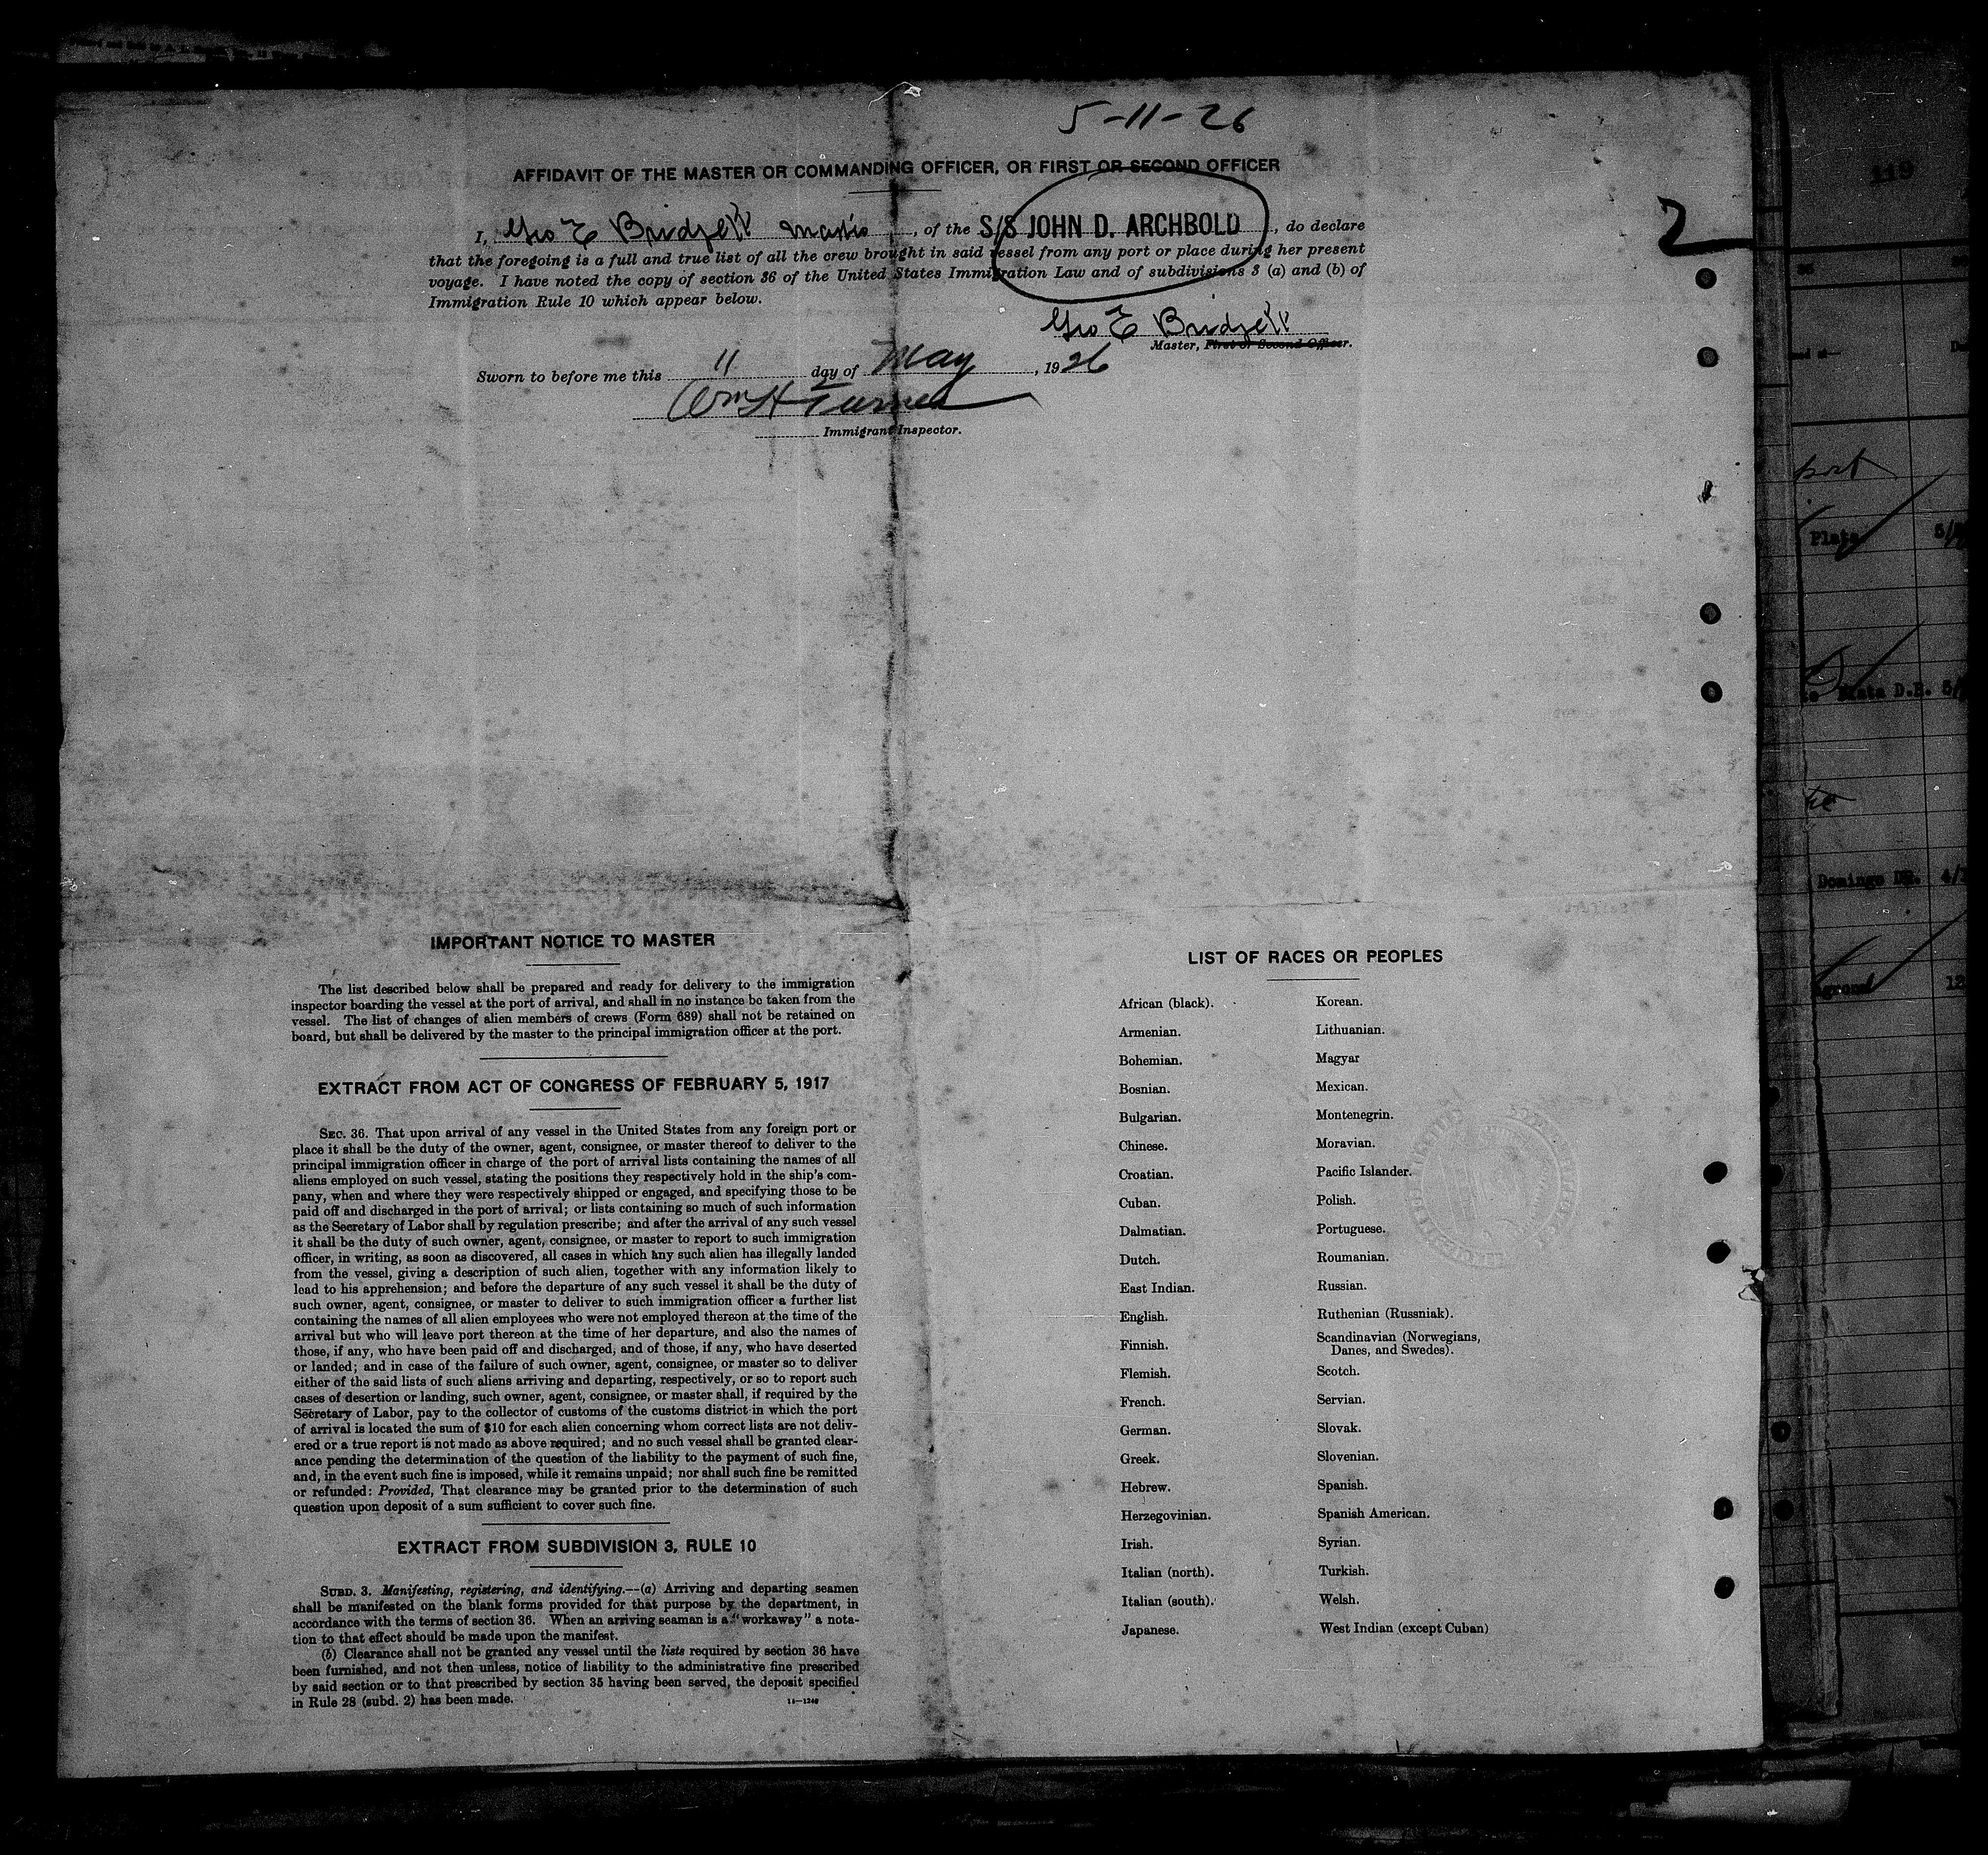 5-11-26
AFFIDAVIT OF THE MASTER OR COMMANDING OFFICER, OR FIRST OR SECOND OFFICER
I, Geo E Bridgett Master, of the S/S JOHN D. ARCHBOLD, do declare
that the foregoing is a full and true list of all the crew brought in said vessel from any port or place during her present
voyage. I have noted the copy of section 36 of the United States Immigration Law and of subdivisions 3 (a) and (b) of
Immigration Rule 10 which appear below.
2
Geo E Bridgett
Master, First or Second Officer.
Sworn to before me this 11 day of May, 1926
Wm H Turner
Immigrant Inspector.
IMPORTANT NOTICE TO MASTER
The list described below shall be prepared and ready for delivery to the immigration
inspector boarding the vessel at the port of arrival, and shall in no instance be taken from the
vessel. The list of changes of alien members of crews (Form 689) shall not be retained on
board, but shall be delivered by the master to the principal immigration officer at the port.
EXTRACT FROM ACT OF CONGRESS OF FEBRUARY 5, 1917
SEC. 36. That upon arrival of any vessel in the United States from any foreign port or
place it shall be the duty of the owner, agent, consignee, or master thereof to deliver to the
principal immigration officer in charge of the port of arrival lists containing the names of all
aliens employed on such vessel, stating the positions they respectively hold in the ship's com-
pany, when and where they were respectively shipped or engaged, and specifying those to be
paid off and discharged in the port of arrival; or lists containing so much of such information
as the Secretary of Labor shall by regulation prescribe; and after the arrival of any such vessel
it shall be the duty of such owner, agent, consignee, or master to report to such immigration
officer, in writing, as soon as discovered, all cases in which any such alien has illegally landed
from the vessel, giving a description of such alien, together with any information likely to
lead to his apprehension; and before the departure of any such vessel it shall be the duty of
such owner, agent, consignee, or master to deliver to such immigration officer a further list
containing the names of all alien employees who were not employed thereon at the time of the
arrival but who will leave port thereon at the time of her departure, and also the names of
those, if any, who have been paid off and discharged, and of those, if any, who have deserted
or landed; and in case of the failure of such owner, agent, consignee, or master so to deliver
either of the said lists of such aliens arriving and departing, respectively, or so to report such
cases of desertion or landing, such owner, agent, consignee, or master shall, if required by the
Secretary of Labor, pay to the collector of customs of the customs district in which the port
of arrival is located the sum of $10 for each alien concerning whom correct lists are not deliv-
ered or a true report is not made as above required; and no such vessel shall be granted clear-
ance pending the determination of the question of the liability to the payment of such fine,
and, in the event such fine is imposed, while it remains unpaid; nor shall such fine be remitted
or refunded: Provided, That clearance may be granted prior to the determination of such
question upon deposit of a sum sufficient to cover such fine.
EXTRACT FROM SUBDIVISION 3, RULE 10
SUBD. 3. Manifesting, registering, and identifying.—(a) Arriving and departing seamen
shall be manifested on the blank forms provided for that purpose by the department, in
accordance with the terms of section 36. When an arriving seaman is a "workaway" a nota-
tion to that effect should be made upon the manifest.
(b) Clearance shall not be granted any vessel until the lists required by section 36 have
been furnished, and not then unless, notice of liability to the administrative fine prescribed
by said section or to that prescribed by section 35 having been served, the deposit specified
in Rule 28 (subd. 2) has been made. 14—1240
LIST OF RACES OR PEOPLES
African (black).
Armenian.
Bohemian.
Bosnian.
Bulgarian.
Chinese.
Croatian.
Cuban.
Dalmatian.
Dutch.
East Indian.
English.
Finnish.
Flemish.
French.
German.
Greek.
Hebrew.
Herzegovinian.
Irish.
Italian (north).
Italian (south).
Japanese.
Korean.
Lithuanian.
Magyar
Mexican.
Montenegrin.
Moravian.
Pacific Islander.
Polish.
Portuguese.
Roumanian.
Russian.
Ruthenian (Russniak).
Scandinavian (Norwegians,
Danes, and Swedes).
Scotch.
Servian.
Slovak.
Slovenian.
Spanish.
Spanish American.
Syrian.
Turkish.
Welsh.
West Indian (except Cuban)
119
port
Plata
Plata D.R.
Domingo DR. 4/
12